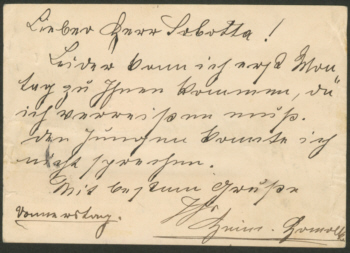 Lieber Herr Sobotta!
Leider kann ich erst Mon
tag zu Ihnen kommen, da
ich verreisen muß.
den Jungen konnte ich
nicht sprechen.
Mit bestem Gruße
Ihr
Donnerstag.
Heinr.